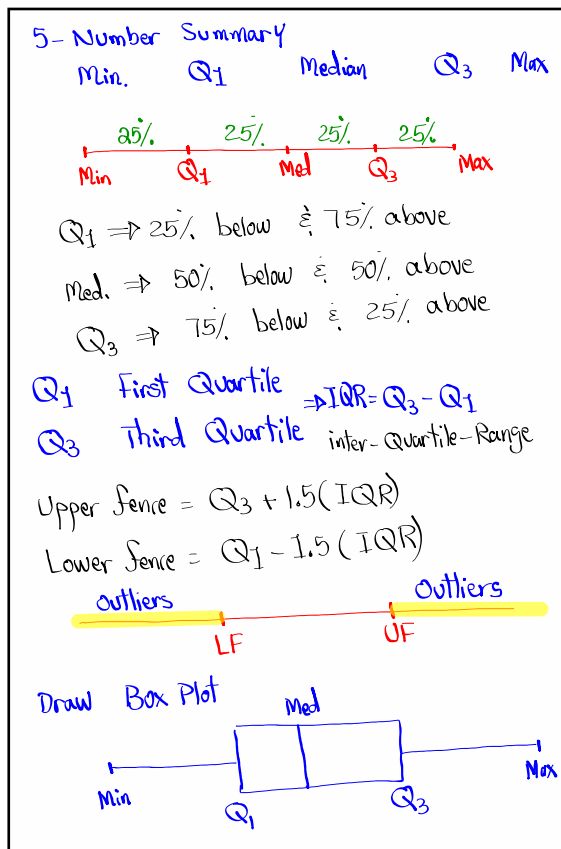 5-Number Summary
Min. Q1 Median Q3 Max
25% 25% 25% 25%
Min Q1 Med Q3 Max
Q1 ⇒ 25% below & 75% above
Med. ⇒ 50% below & 50% above
Q3 ⇒ 75% below & 25% above
Q1 First Quartile ⇒ IQR = Q3 - Q1
Q3 Third Quartile inter-Quartile-Range
Upper fence = Q3 + 1.5(IQR)
Lower fence = Q1 - 1.5(IQR)
Outliers Outliers
LF UF
Draw Box Plot
Med
Min Max
Q1 Q3